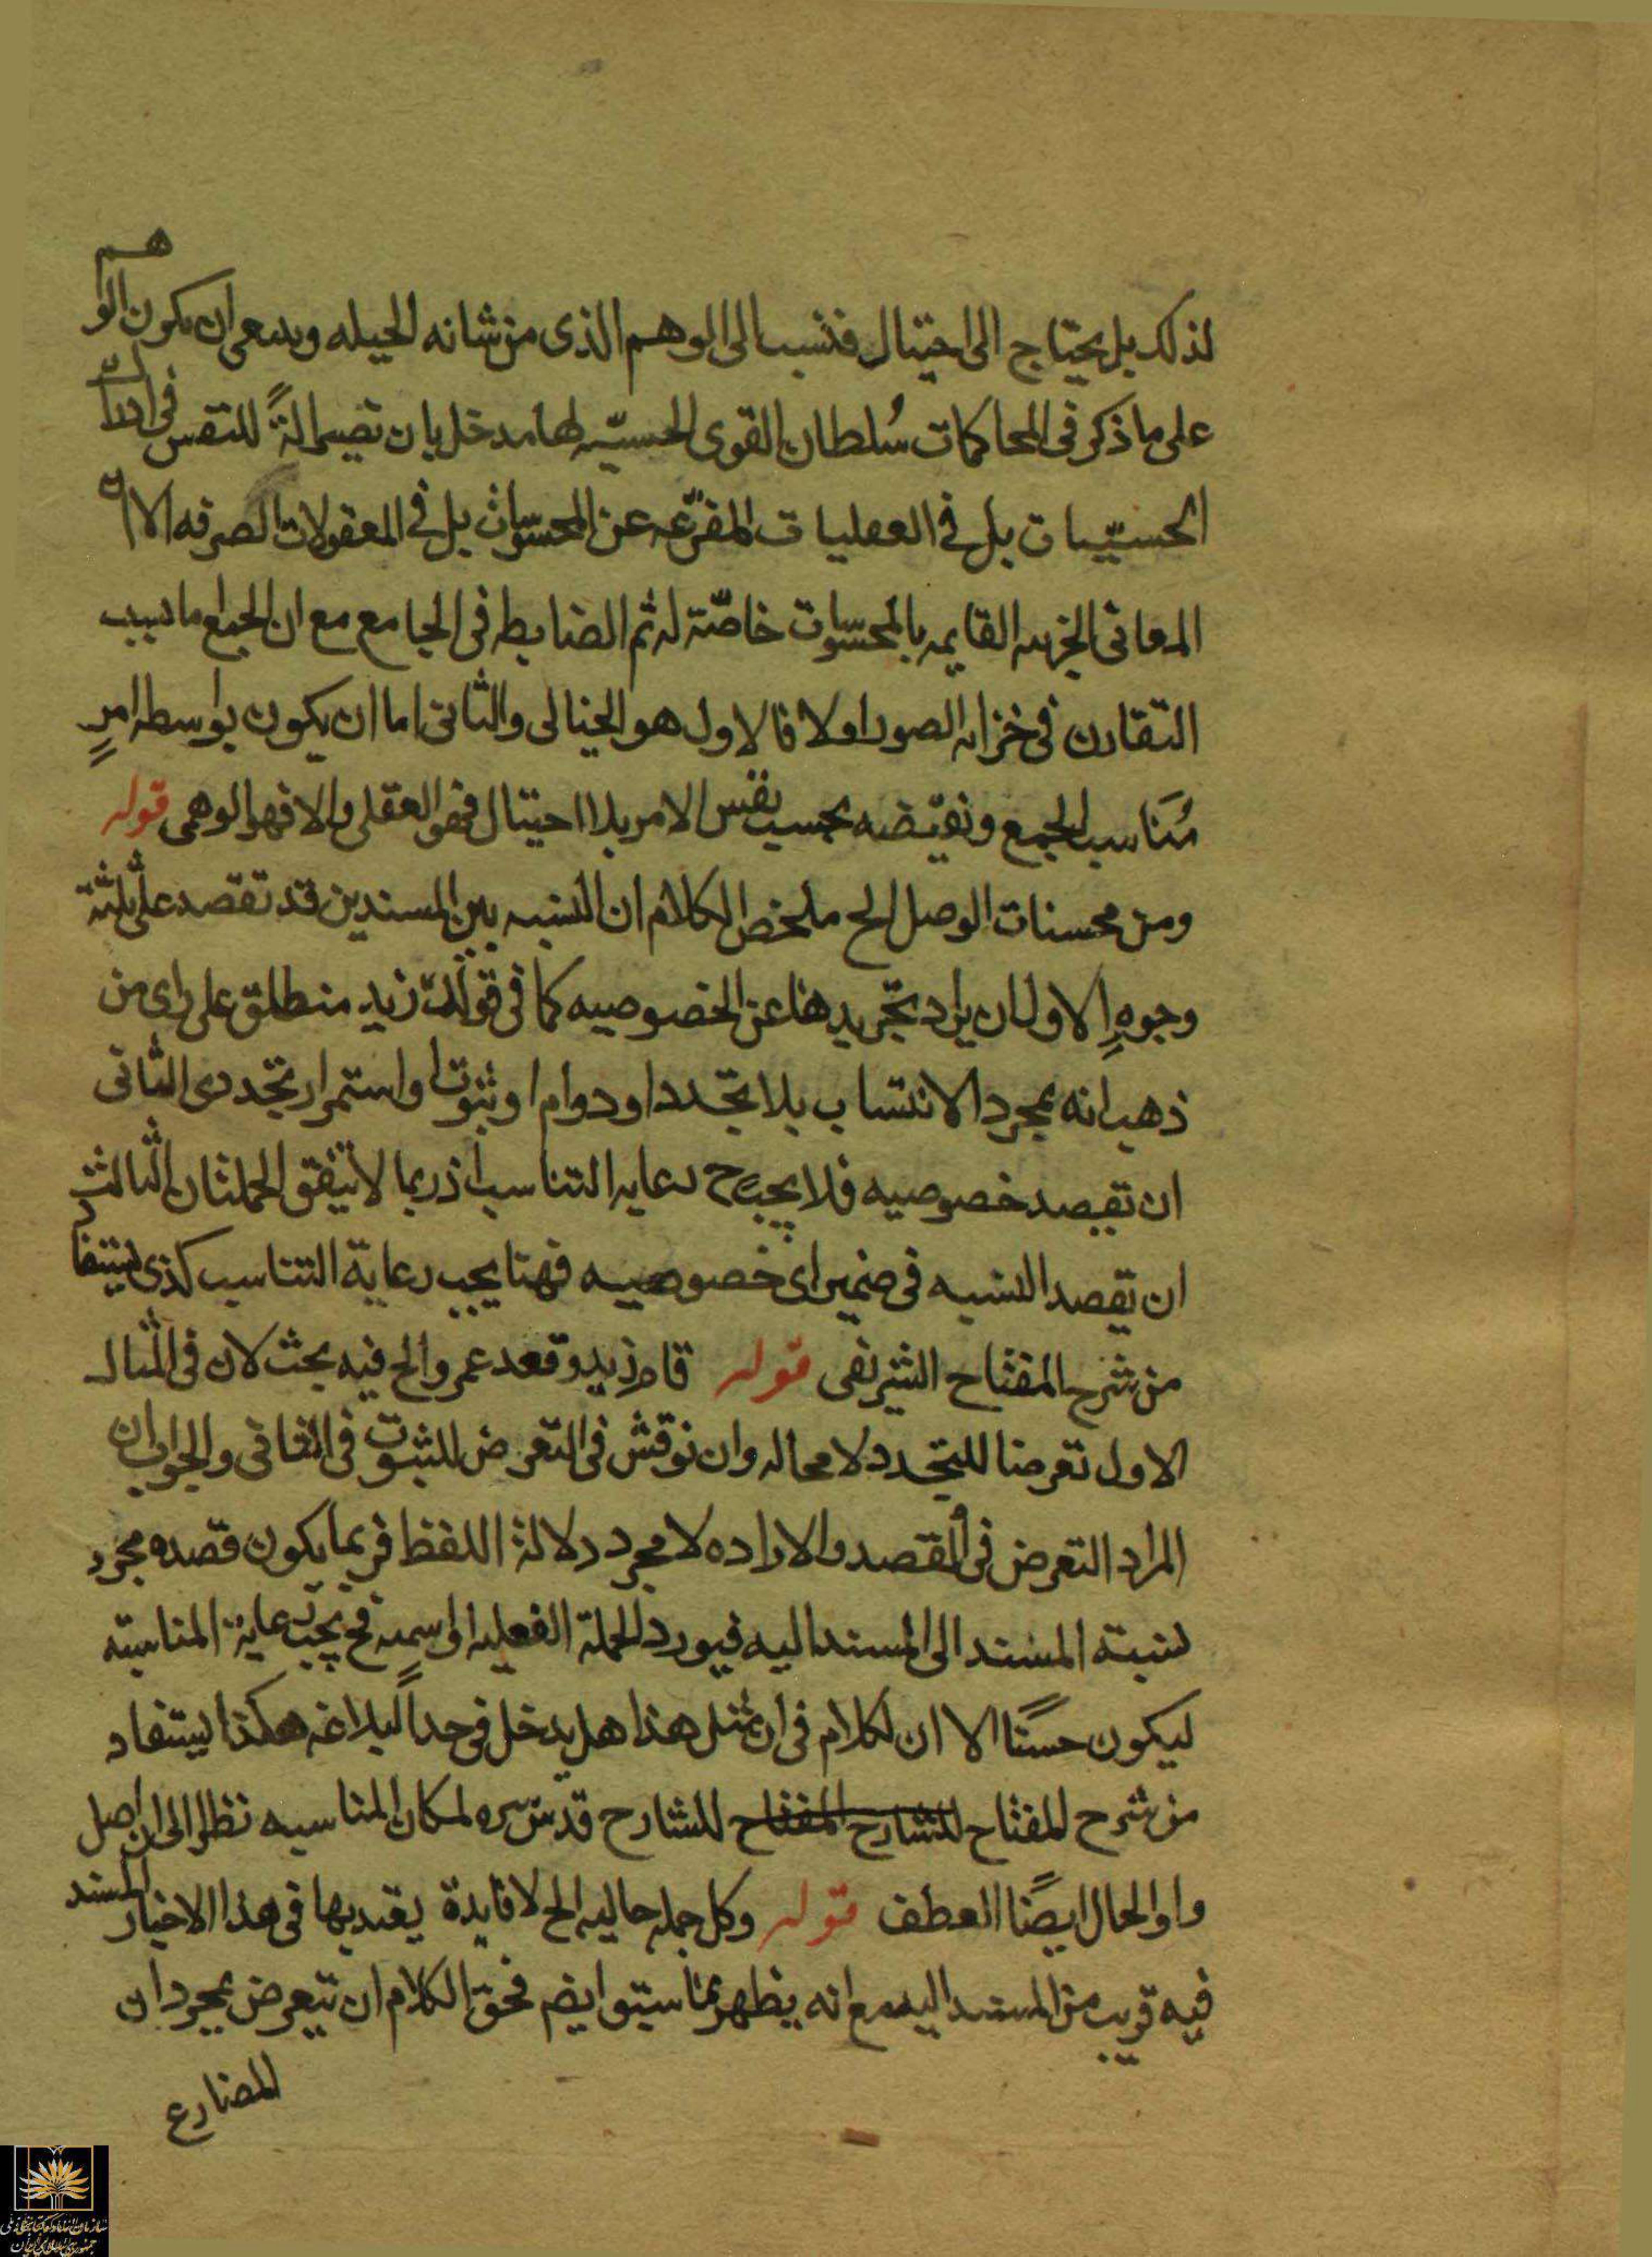 لذلك بل يحتاج الى احتيال فنسب الى الوهم الذى من شانه الحيله وينبغى ان يكون الوهم
على ما ذكر فى المحاكمات سُلطان القوى الحسيّه لها مدخل بان تصير الةً للنفس فى ادراك
الحسيّيات بل فى العقليات المفزعه عن المحسوسات بل فى المعقولات الصرفه الا ان
المعانى الجزييه القايمه بالمحسوسات خاصّة له ثم الضابطه فى الجامع مع ان الجمع ما بسبب
التقارن فى خزانه الصور اولا فالاول هو الخيالى والثانى اما ان يكون بواسطه امرٍ
مُنَاسب الجمع ونقيّضه بحسب نفس الامر بلا احتيال فهو العقلى والا فهو الوهمى قوله
ومن محسنات الوصل الخ ملخص الكلام ان النسبه بين المسندين قد تقصد على ثلثة
وجوهٍ الاول ان يراد تجريدها عن الخصوصيه كما فى قولك زيد منطلق على راى من
ذهب انه بمجرد الانتساب بلا تجدد او دوام او ثبوت او استمرار تجددى الثانى
ان تقصد خصوصيه فلا يجب ح رعايه التناسب اذ ربما لا تتفق الجملتان الثالث
ان تقصد النسبه فى ضمير اى خصوصيه فهنا يجب رعاية التناسب كذى يستفاد
من شرح المفتاح الشريفى قوله قام زيد وقعد عمرو الخ فيه بحث لان فى المثال
الاول تعرضا للتجدد لا محاله وان نوقش فى التعرض للثبوت فى الثانى والجواب ان
المراد التعرض فى القصد والاراده لا مجرد دلالة اللفظ فربما يكون قصده مجرد
نسبة المسند الى المسند اليه فيورد الجملة الفعليه او اسميه فح يجب رعاية المناسبه
ليكون حسنًا الا ان الكلام فى ان مثل هذا هل يدخل فى حد البلاغه هكذا يستفاد
من شرح المفتاح للشارح المفتاح للشارح قدس سره لمكان المناسبه نظرا الى ان اصل
واو الحال ايضًا العطف قوله وكل جمله حاليه الخ لا فايدة يعتد بها فى هذا الاخبار المسند
فيه قريب من المسند اليه مع انه يظهر مما سبق ايضم فحق الكلام ان يتعرض بمجرد ان
المضارع